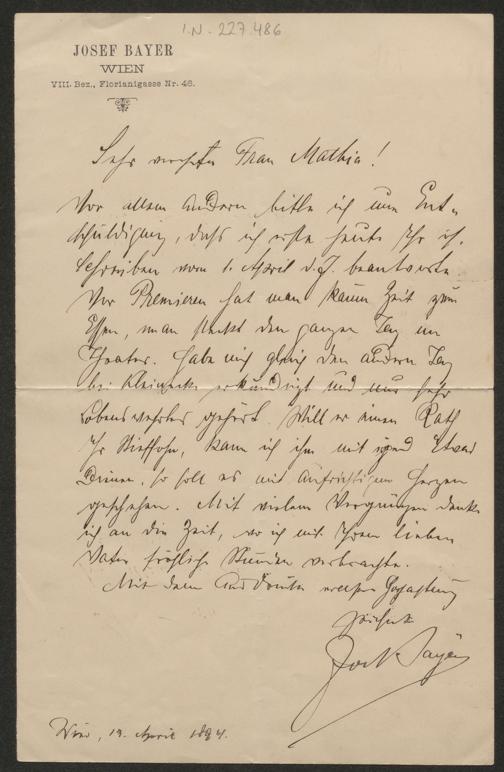 I.N. 227.486
JOSEF BAYER
WIEN
VIII. Bez., Florianigasse Nr. 46.
Sehr verehrte Frau Mathia!
Vor allem Andern bitte ich um Ent-
schuldigung, daß ich erst heute Ihr
Schreiben vom 1. April d. J. beantworte.
Vor Premieren hat man kaum Zeit zum
Essen, man steckt den ganzen Tag im
Theater. Habe mich gleich den andern Tag
bei erkundigt und nur sehr
Lobenswerthes gehört. Will er einen Rath
Ihr Stiefsohn, kann ich ihm mit irgend Etwas
Dienen, so soll es mit aufrichtigem Herzen
geschehen. Mit vielem Vergnügen denke
ich an die Zeit, wo ich mit Ihrem lieben
Vater fröhliche Stunden verbrachte.
Mit dem Ausdrucke
zeichnet
Jos. Bayer
Wien, 19. April 1894.